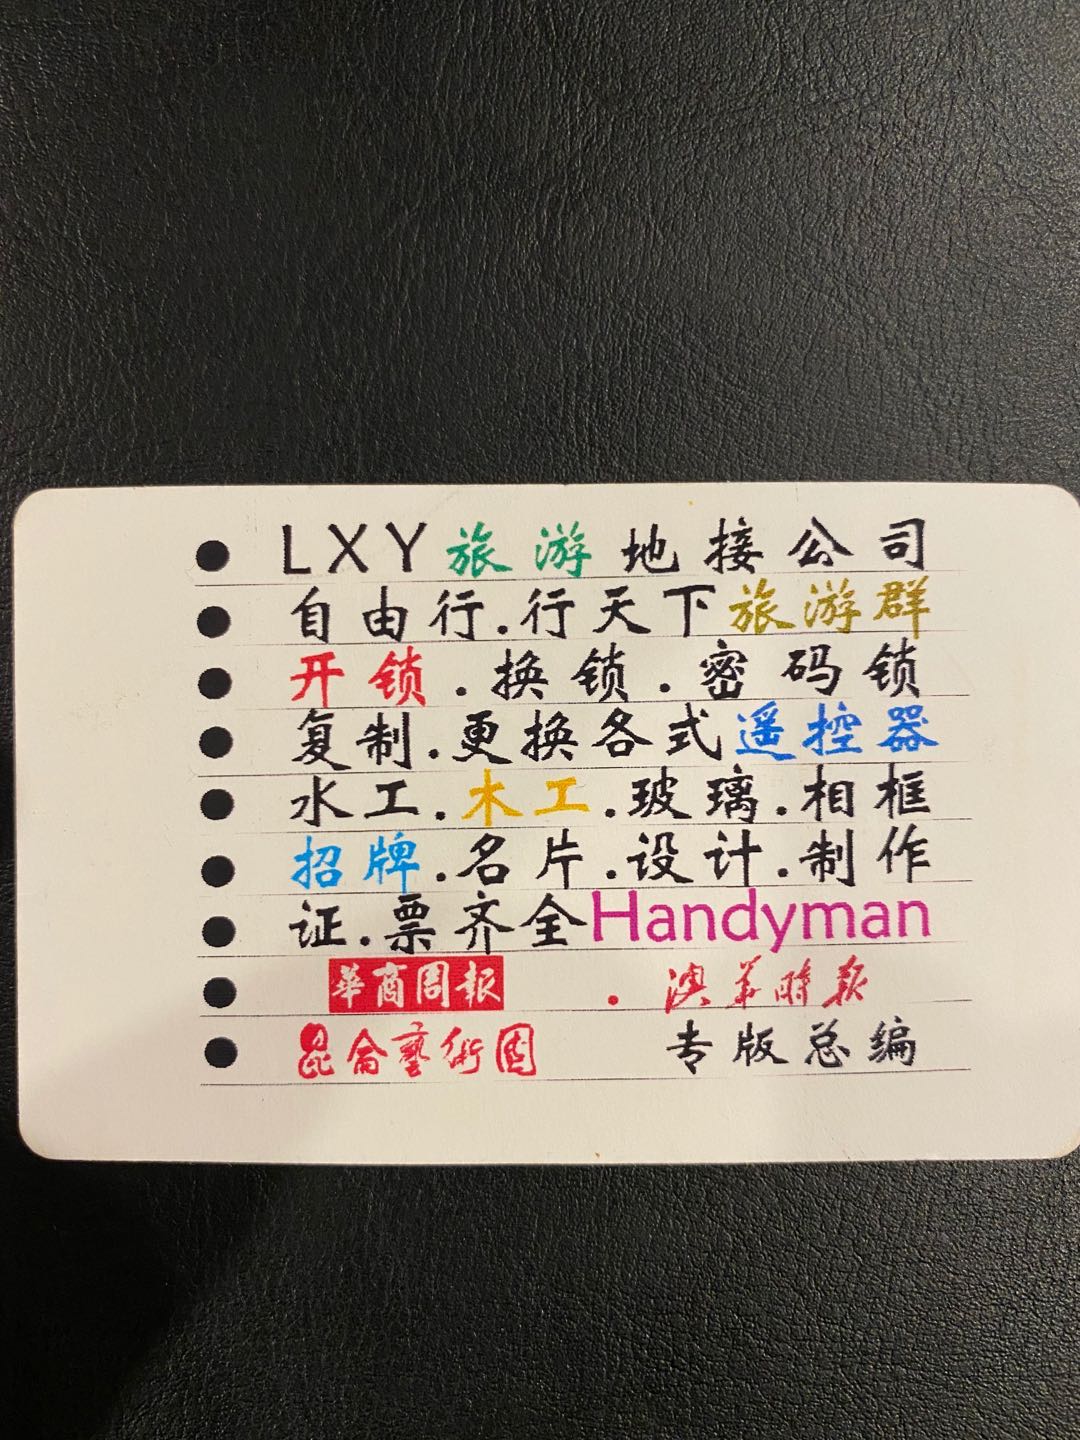 LXY旅游地接公司
自由行.行天下旅游群
开锁.换锁.密码锁
复制.更换各式遥控器
水工.木工.玻璃.相框
招牌.名片.设计.制作
证.票齐全Handyman
華商周报.澳华時报
昆侖藝術园 专版总编